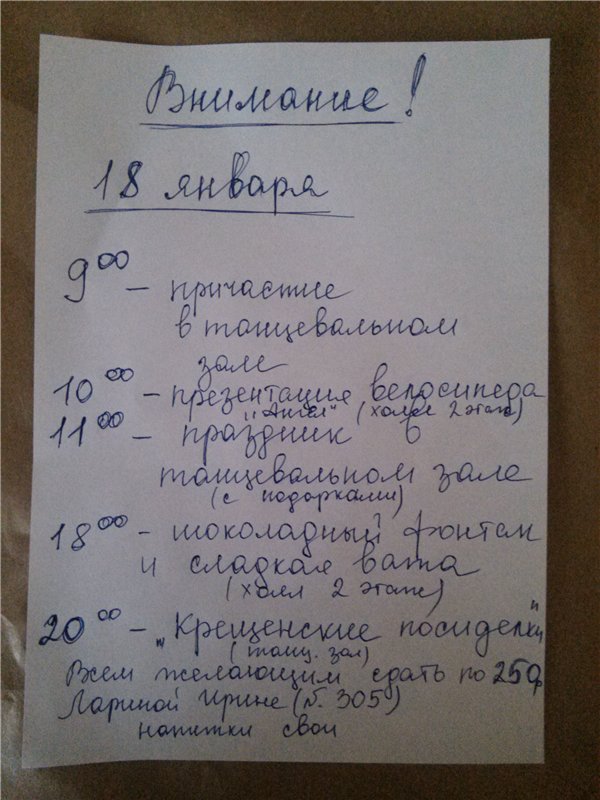 Внимание!
18 января
9⁰⁰ – причастие
в танцевальном
зале
10⁰⁰ – презентация велосипеда
"Ангел" (холл 2 этаж)
11⁰⁰ – праздник в
танцевальном зале
(с подарками)
18⁰⁰ – шоколадный фонтан
и сладкая вата
(холл 2 этаж)
20⁰⁰ – "Крещенские посиделки"
(танц. зал)
Всем желающим сдать по 250р
Лариной Ирине (п. 305)
напитки свои